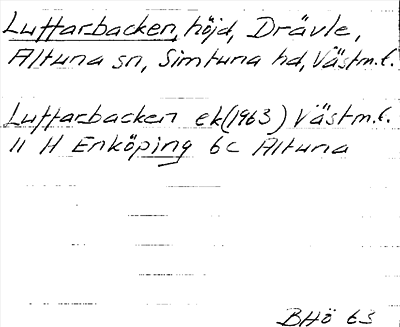 Luttarbacken, höjd, Drävle,
Altuna sn, Simtuna hd, Västm.l.
Luttarbacken ek(1963) Västm.l.
11 H Enköping 6c Altuna
BHö 63